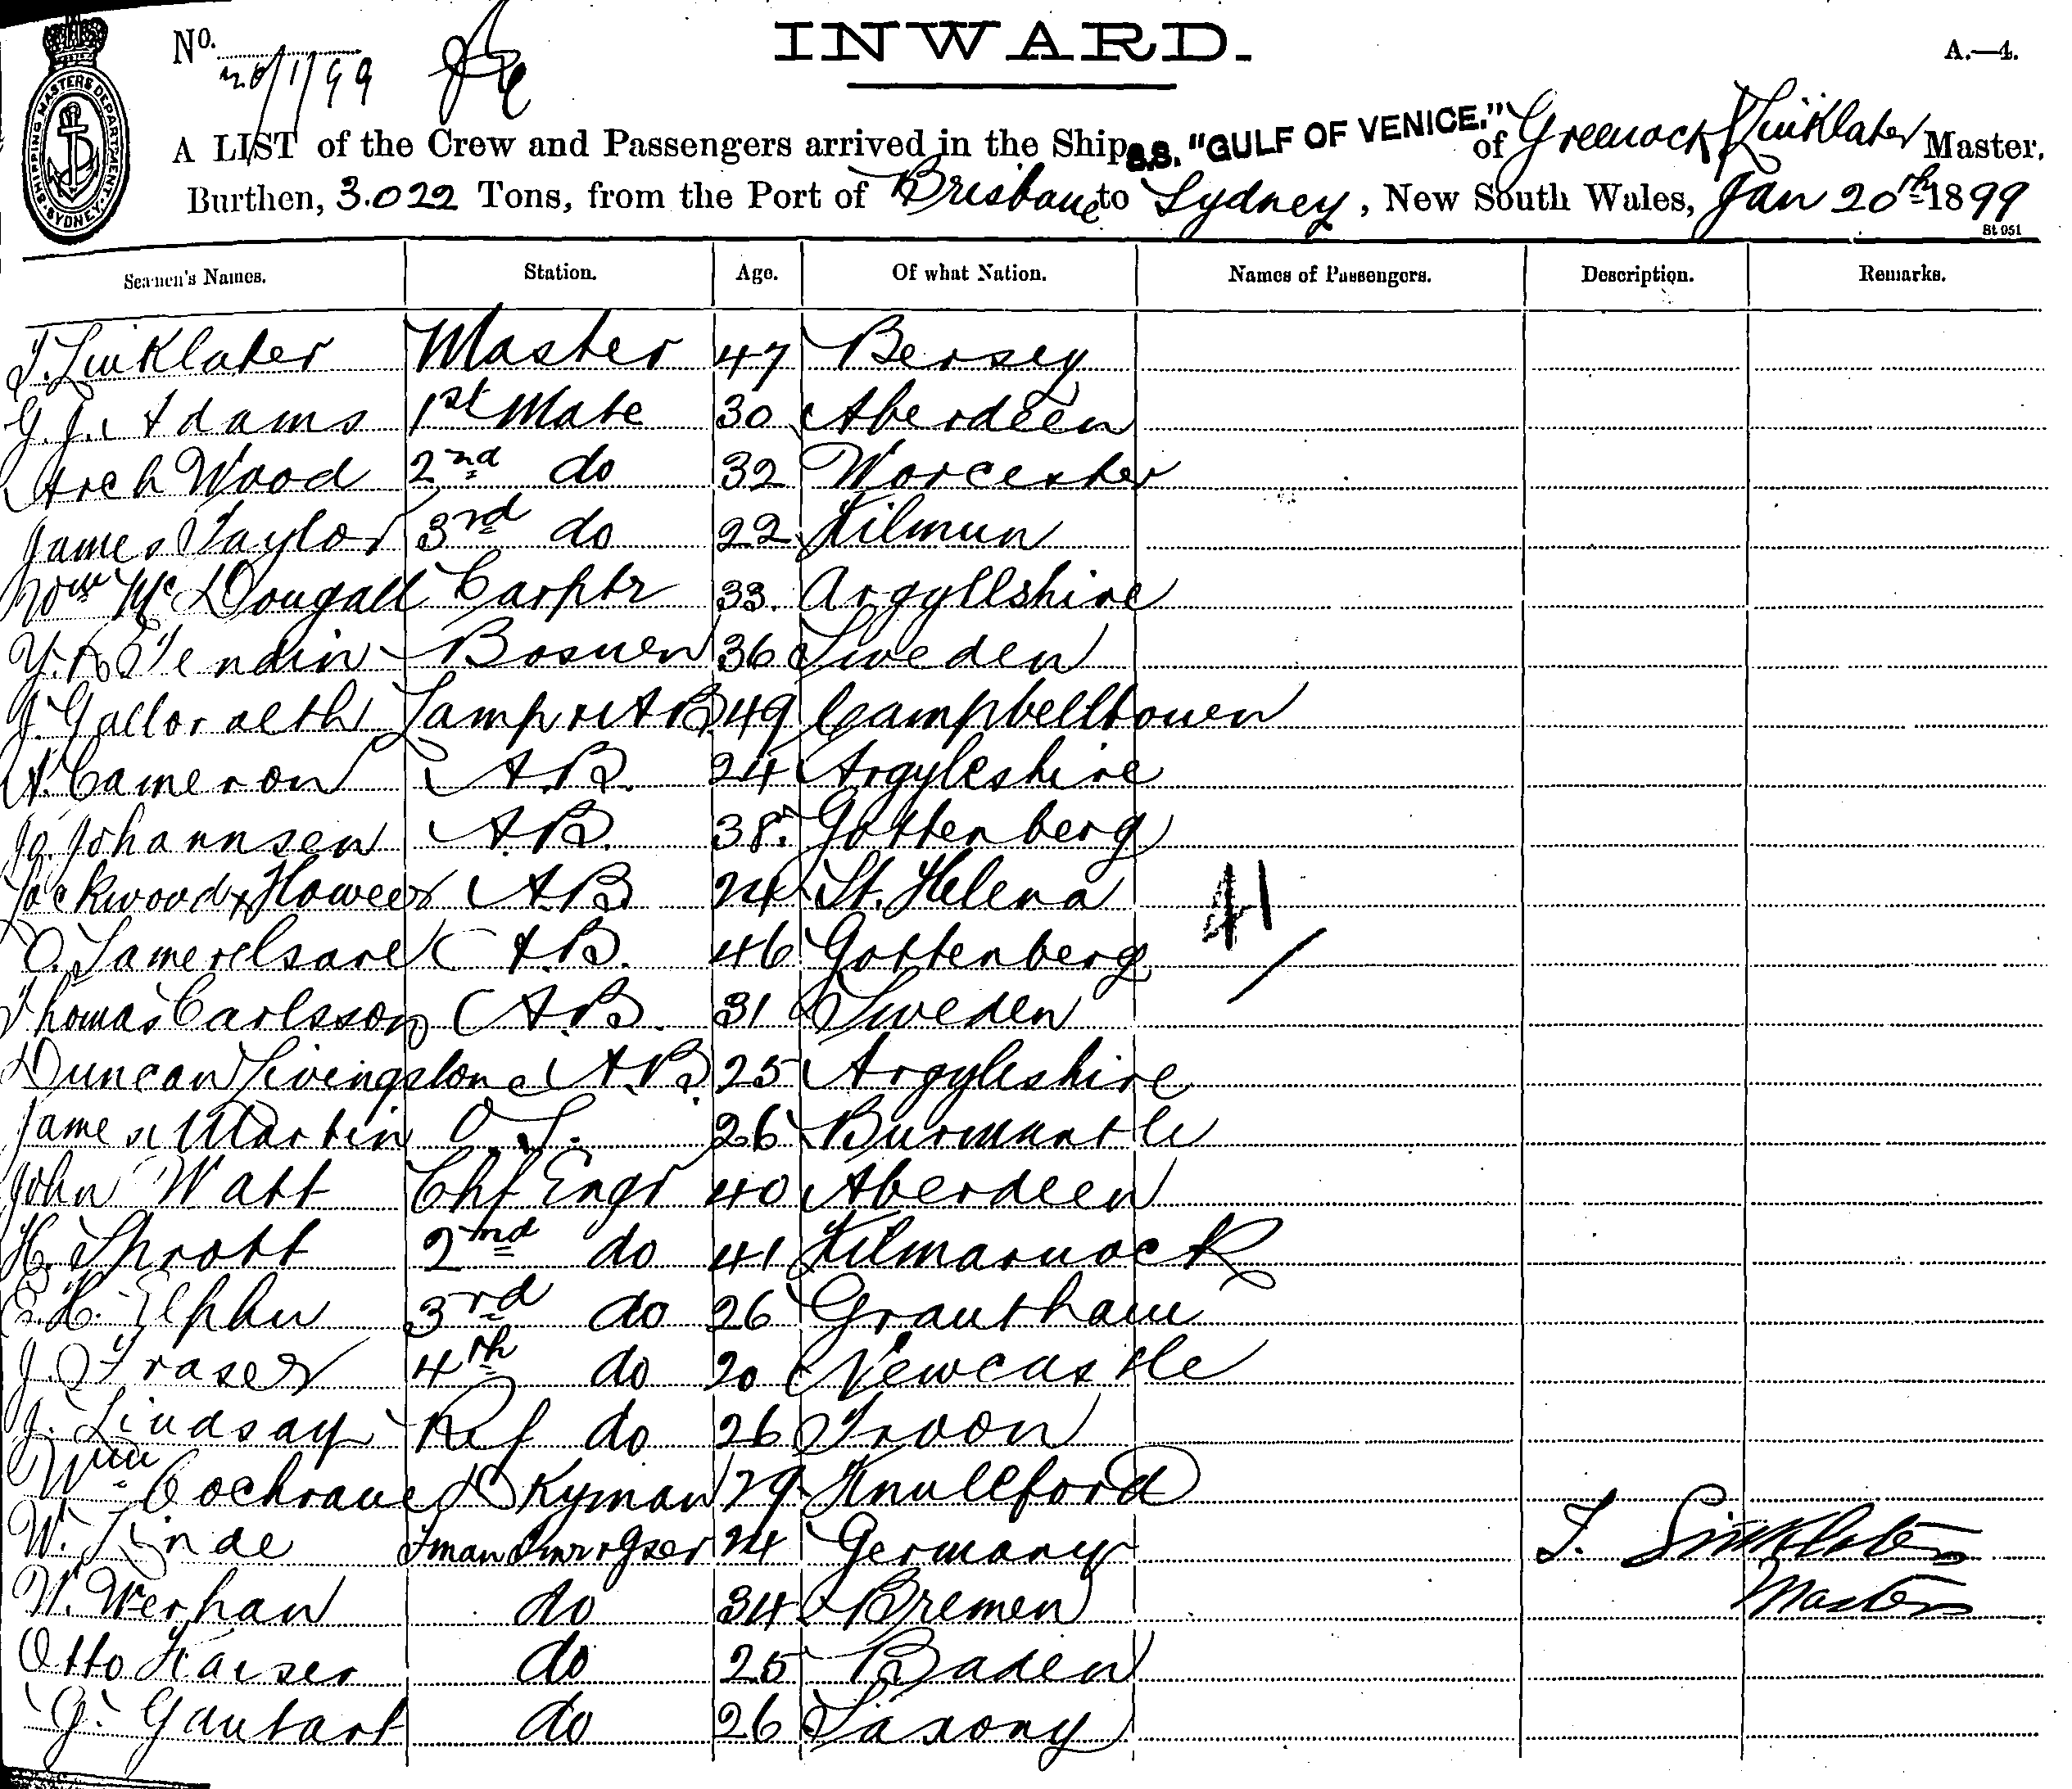 INWARD.
No. 20/1/99
A.—4.
SHIPPING MASTERS DEPARTMENT SYDNEY
A LIST of the Crew and Passengers arrived in the Ship S.S. "GULF OF VENICE." of Greenock Linklater Master,
Burthen, 3.022 Tons, from the Port of Brisbane to Sydney, New South Wales, Jan 20th 1899
St 051
Seamen's Names. Station. Age. Of what Nation. Names of Passengers. Description. Remarks.
T. Linklater Master 47 Bersey
G. J. Adams 1st Mate 30 Aberdeen
Arch Wood 2nd do 32 Worcester
James Taylor 3rd do 22 Kilmun
Wm McDougall Carptr 33. Argyllshire
Bosuen 36 Sweden
J. Lampr & AB 49 Campbelltouen
A. Cameron A.B. 24 Argyleshire
Jo. Johannsen A.B. 38. Gottenberg
Lockwood x Howees A.B 24 St. Helena
O. A.B. 46 Gottenberg
41
Thomas Carlsson A.B. 31 Sweden
Duncan Livingstone A.B. 25 Argyleshire
James Martin O.S. 26
John Watt Chf Engr 40 Aberdeen
H. Shrott 2nd do 41 Kilmarnock
E. H. 3rd do 26 Grantham
J. Fraser 4th do 20 Newcastle
J. Lindsay Ref do 26 Troon
Wm Cochrane Dkyman 29
W. Linde Fman 24 Germany
T. Linklater
W. Werhan do 34 Bremen
Master
Otto Kaiser do 25 Baden
G. Gautart do 26 Saxony